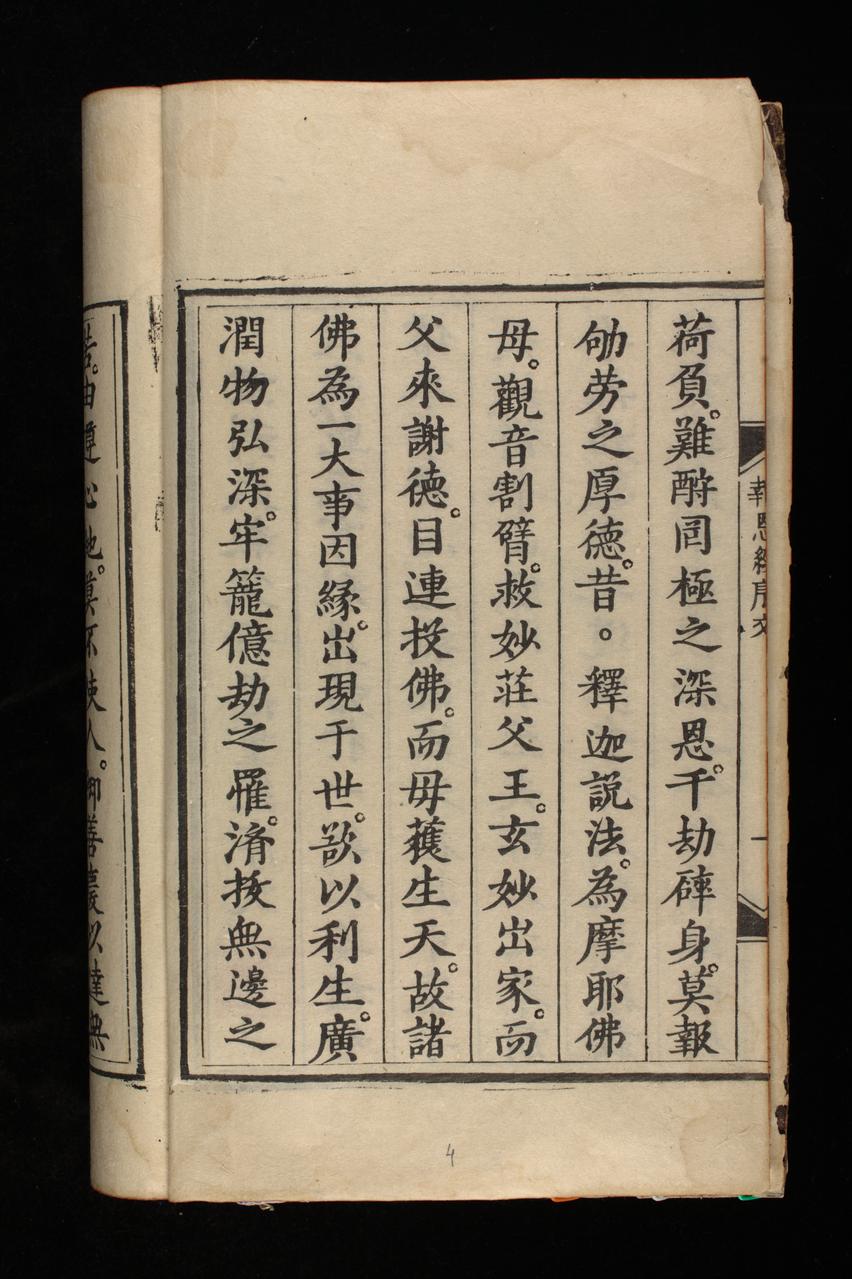 報恩經序文 一
荷負。難酧罔極之深恩。千劫碎身。莫報
劬勞之厚德。昔。釋迦説法。為摩耶佛
母。觀音割臂。救妙莊父王。玄妙出家。而
父來謝德。目連投佛。而母獲生天。故諸
佛為一大事因緣。出現于世。欲以利生。廣
潤物弘深。牢籠億劫之罹。濟拔無邊之
苦。由遵心地。莫不使人。御善以達無